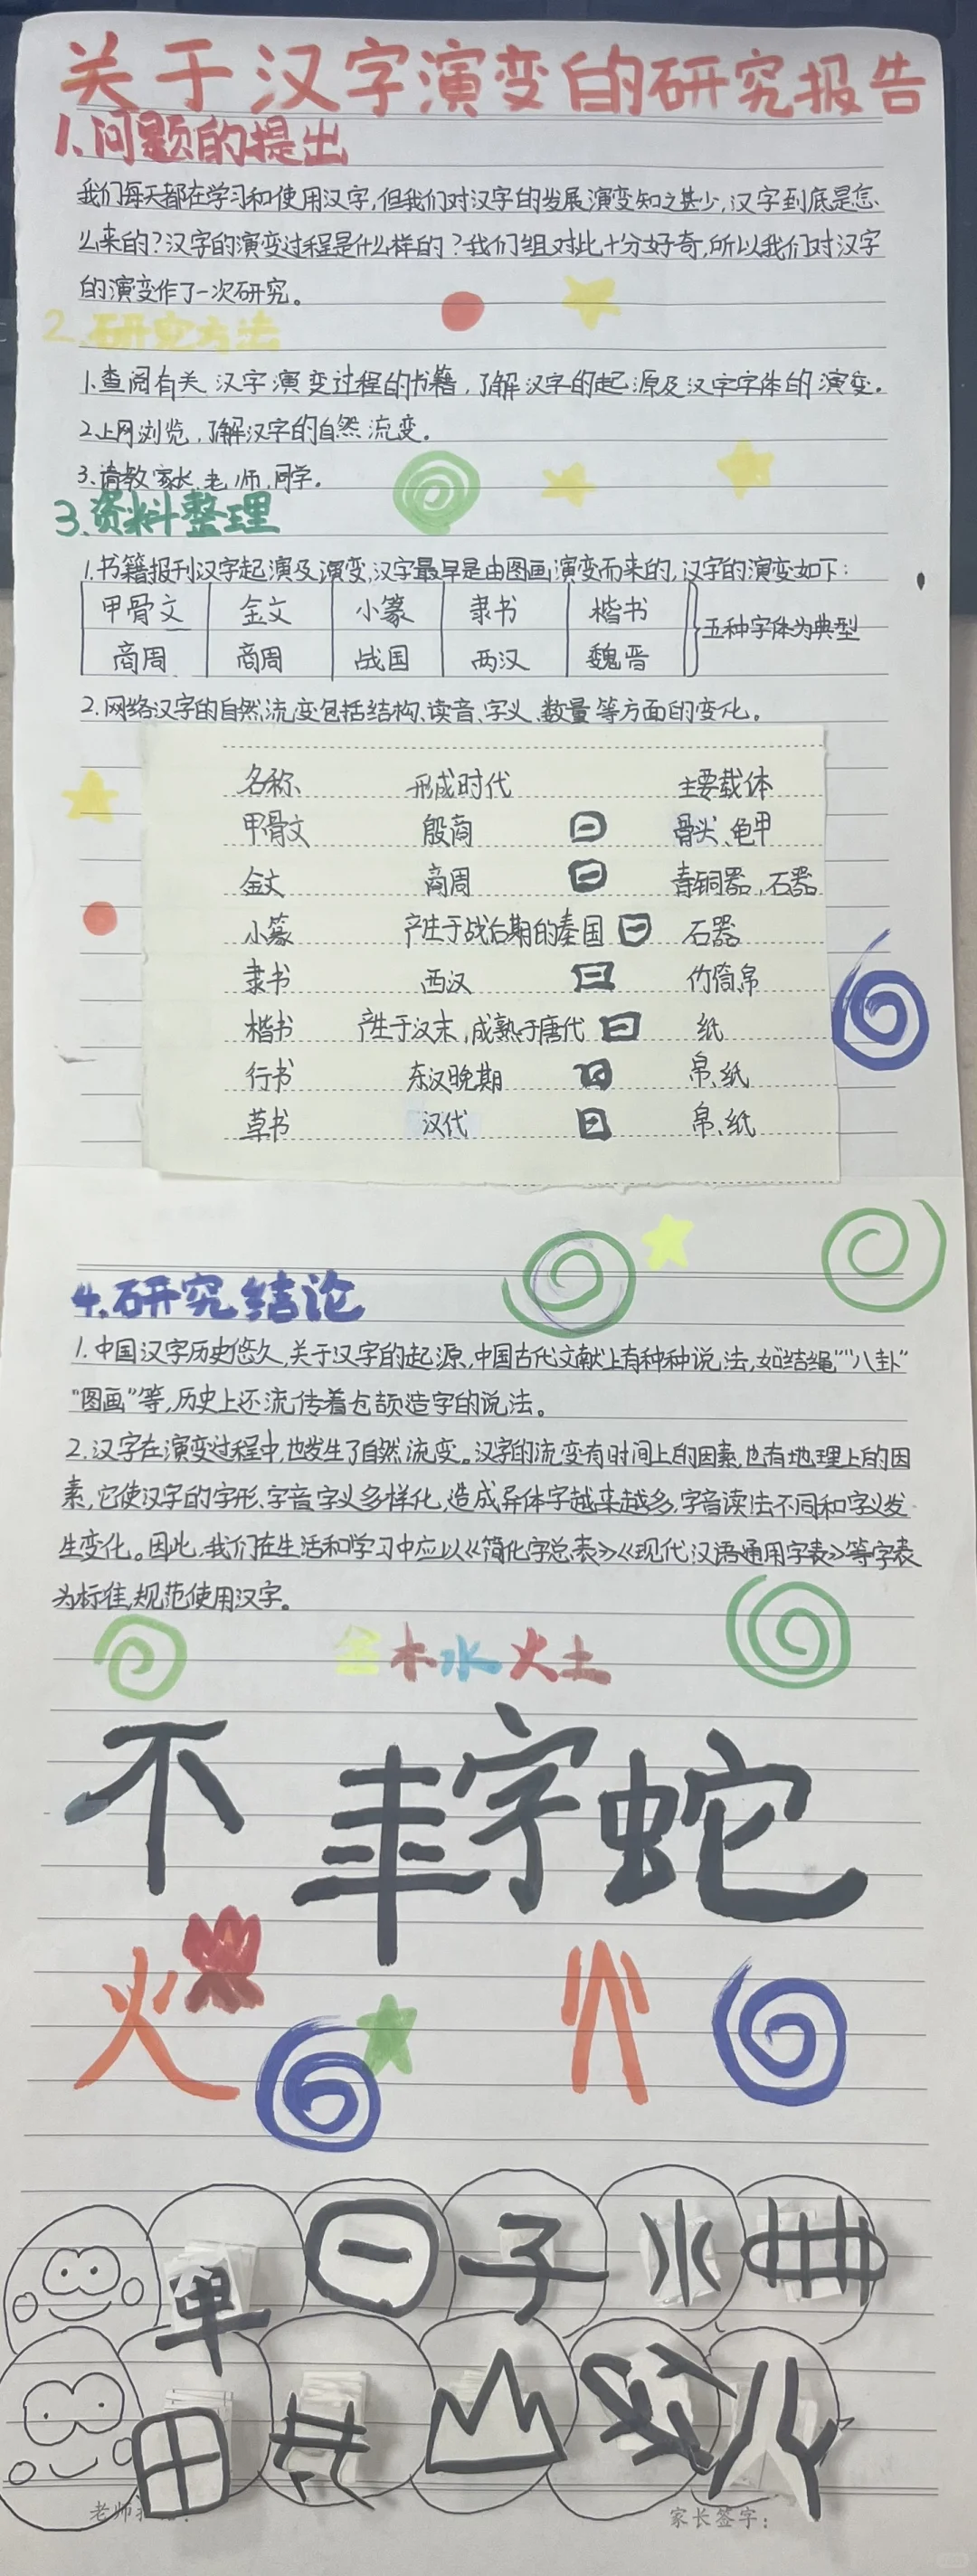 关于汉字演变的研究报告
1.问题的提出
我们每天都在学习和使用汉字,但我们对汉字的发展演变知之甚少,汉字到底是怎
么来的?汉字的演变过程是什么样的?我们组对此十分好奇,所以我们对汉字
的演变作了一次研究。
2.研究方法
1.查阅有关汉字演变过程的书籍,了解汉字的起源及汉字字体的演变.
2.上网浏览,了解汉字的自然流变.
3.请教家长,老师,同学.
3.资料整理
1.书籍报刊汉字起演及演变,汉字最早是由图画演变而来的,汉字的演变如下:
甲骨文 金文 小篆 隶书 楷书
商周 商周 战国 两汉 魏晋
五种字体为典型
2.网络汉字的自然流变包括结构、读音、字义、数量等方面的变化.
名称 形成时代 主要载体
甲骨文 殷商 骨头、龟甲
金文 商周 青铜器,石器
小篆 产生于战后期的秦国 石器
隶书 西汉 竹简帛
楷书 产生于汉末,成熟于唐代 纸
行书 东汉晚期 帛、纸
草书 汉代 帛、纸
4.研究结论
1.中国汉字历史悠久,关于汉字的起源,中国古代文献上有种种说法,如"结绳""八卦"
"图画"等,历史上还流传着仓颉造字的说法。
2.汉字在演变过程中,也发生了自然流变。汉字的流变有时间上的因素,也有地理上的因
素,它使汉字的字形、字音字义多样化,造成异体字越来越多,字音读法不同和字义发
生变化。因此,我们在生活和学习中应以《简化字总表》《现代汉语通用字表》等字表
为标准,规范使用汉字。
金木水火土
不 字蛇
火
单 子
田
老师
家长签字: